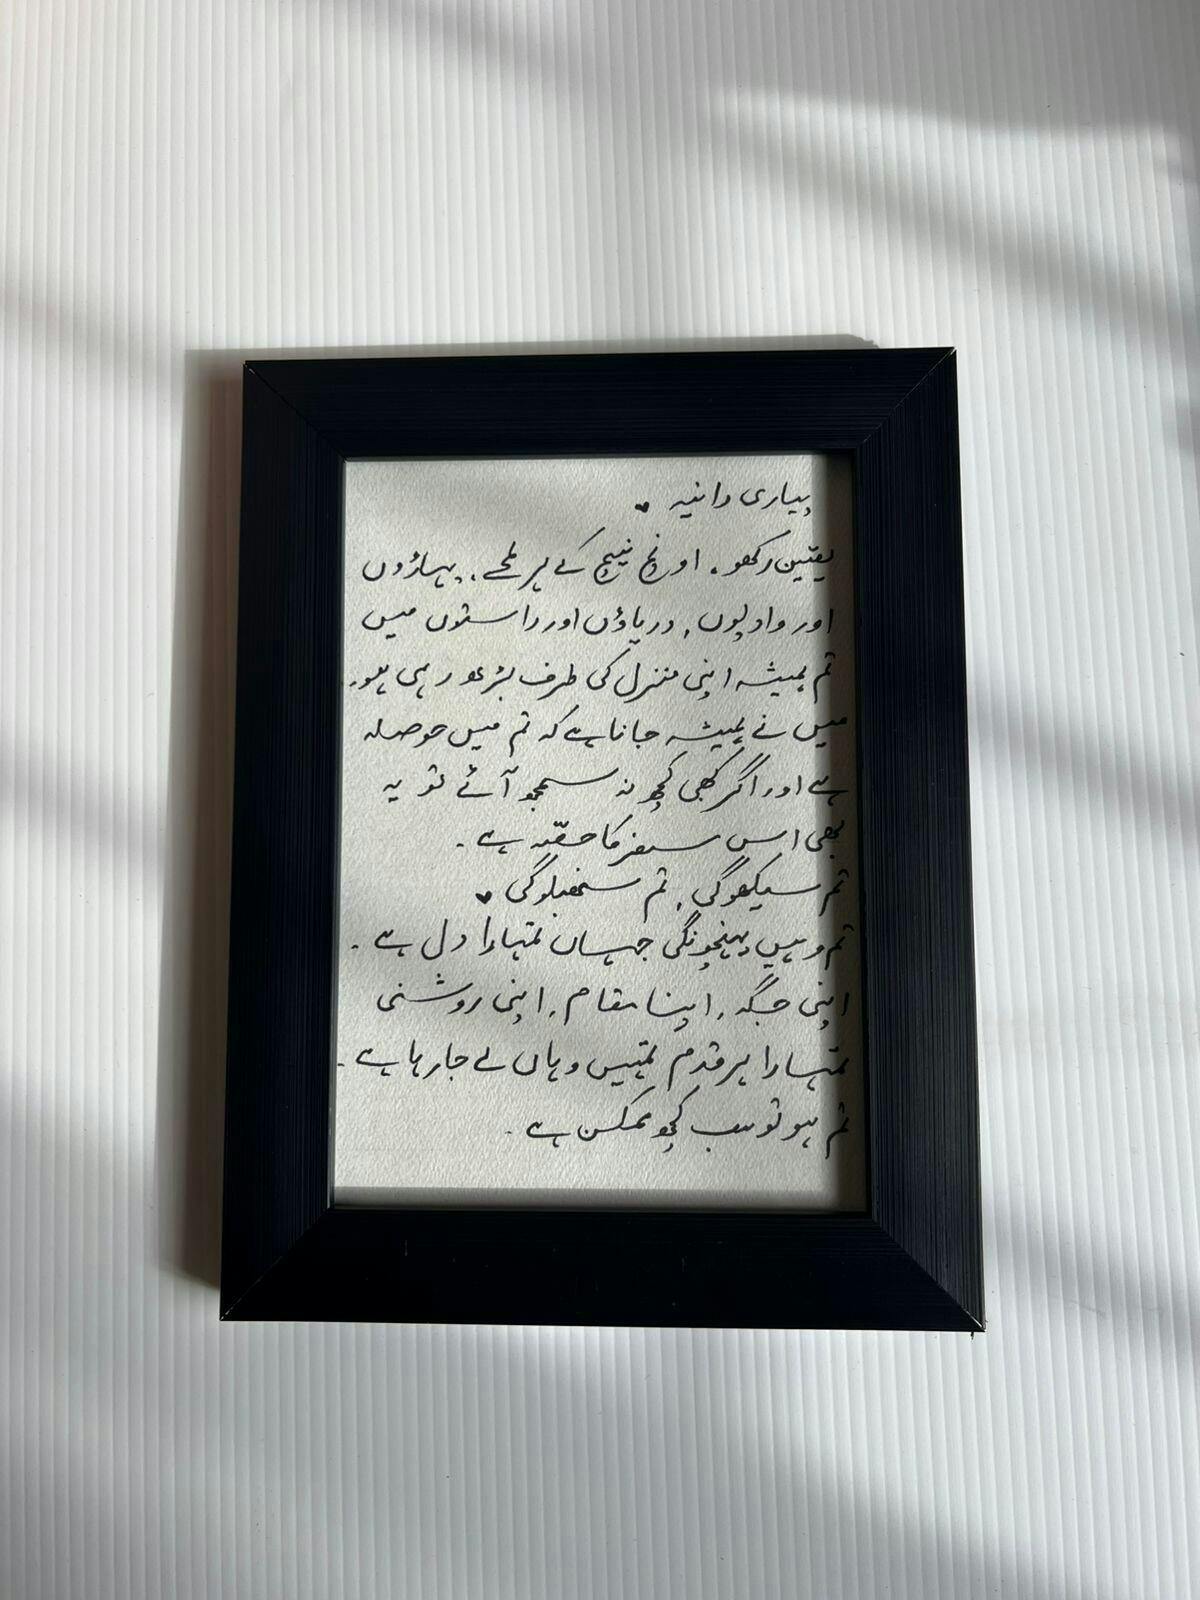 پیاری دانیہ ♥
یقین رکھو، اونچ نیچ کے ہر لمحے، پہاڑوں
اور وادیوں، دریاؤں اور راستوں میں
تم ہمیشہ اپنی منزل کی طرف بڑھ رہی ہو۔
میں نے ہمیشہ جانا ہے کہ تم میں حوصلہ
ہے اور اگر کبھی کچھ نہ سمجھ آئے تو یہ
بھی اس سفر کا حصّہ ہے۔
تم سیکھو گی، تم سنبھلو گی ♥
تم وہیں پہنچونگی جہاں تمہارا دل ہے۔
اپنی جگہ، اپنا مقام، اپنی روشنی
تمہارا ہر قدم تمہیں وہاں لے جا رہا ہے۔
تم ہو تو سب کچھ ممکن ہے۔